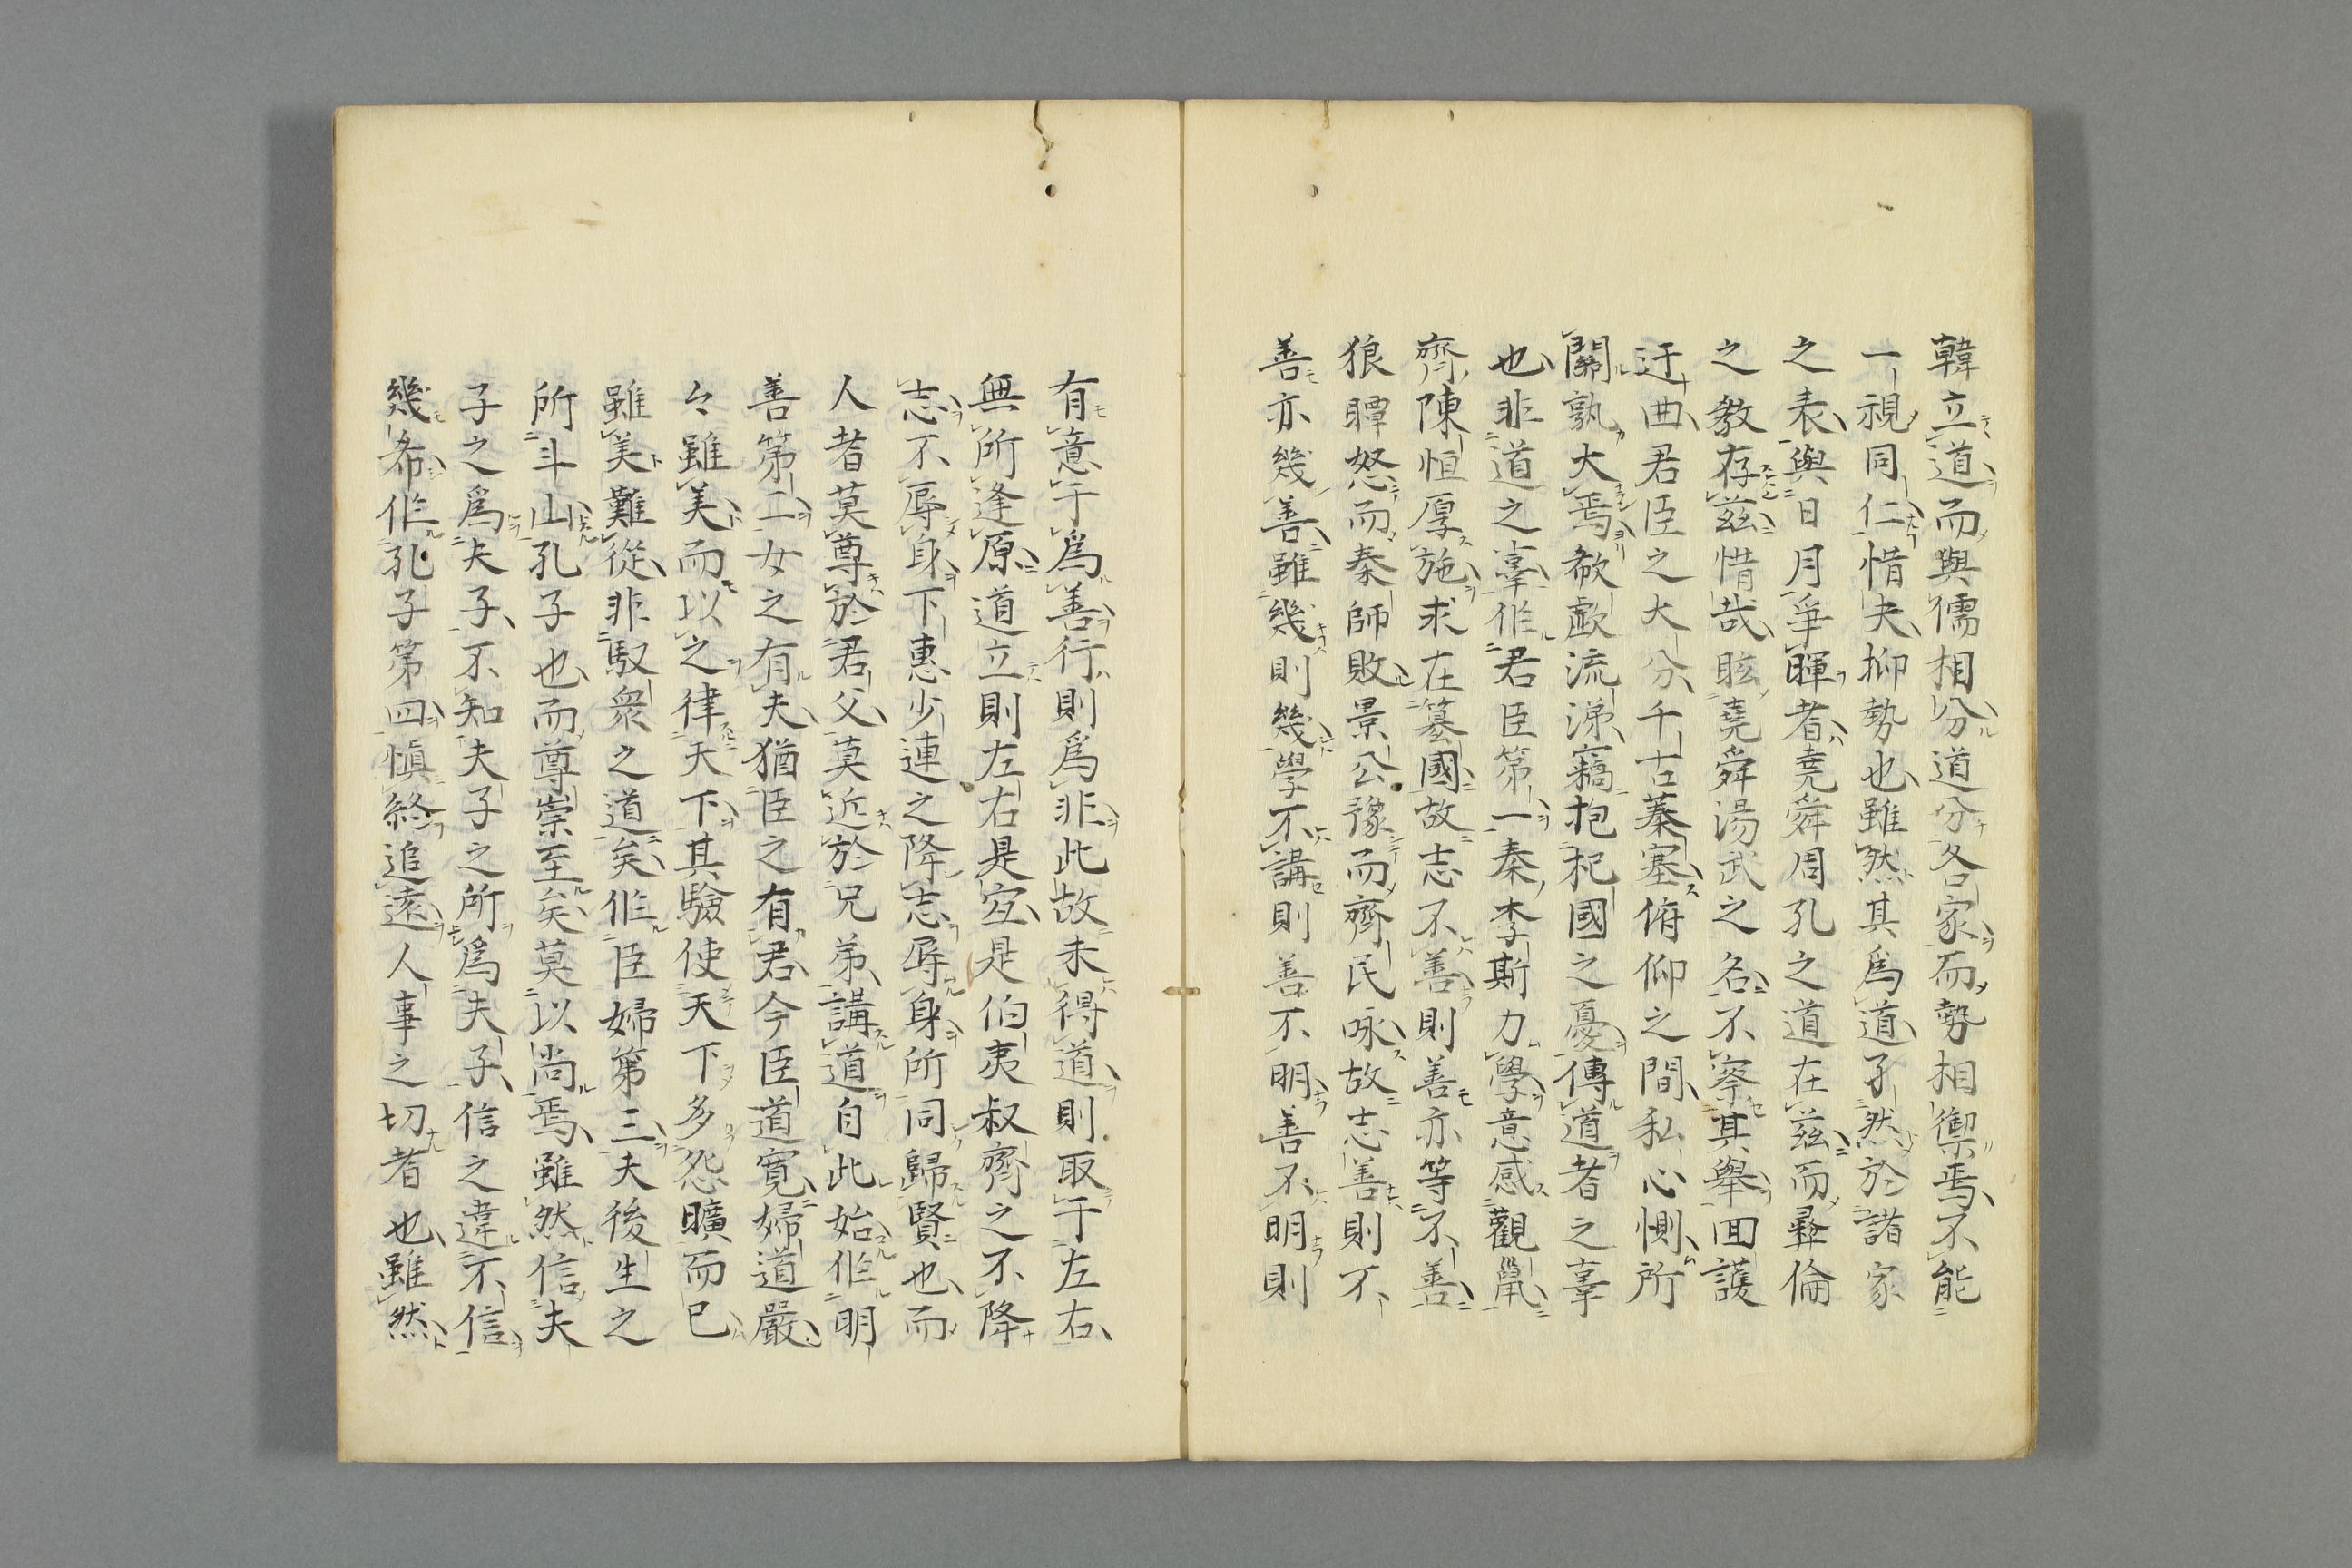 韓立道而與儒相分道分各家而勢相禦焉不能
一視同仁惜夫抑勢也雖然其爲道孑然於諸家
之表與日月爭暉者堯舜周孔之道在茲而彝倫
之教存茲惜哉眩堯舜湯武之名不察其舉回護
迂曲君臣之大分千古蓁塞俯仰之間私心惻所
關孰大焉欷歔流涕竊抱杞國之憂傳道者之辜
也非道之辜作君臣第一秦李斯力學意感觀鼠
齊陳恒厚施求在簒國故志不善則善亦等不善
狼瞫怒而秦師敗景公豫而齊民咏故志善則不
善亦幾善雖幾則幾學不講則善不明善不明則
有意于爲善行則爲非此故未得道則取于左右
無所逢原道立則左右是宜是伯夷叔齊之不降
志不辱身下惠少連之降志辱身所同歸賢也而
人者莫尊於君父莫近於兄弟講道自此始作明
善第二女之有夫猶臣之有君今臣道寬婦道嚴
々雖美而以之律天下其驗使天下多怨曠而已
雖美難從非馭衆之道矣作臣婦第三夫後生之
所斗山孔子也而尊崇至矣莫以尚焉雖然信夫
子之爲夫子不知夫子之所爲夫子信之違不信
幾希作孔子第四愼終追遠人事之切者也雖然